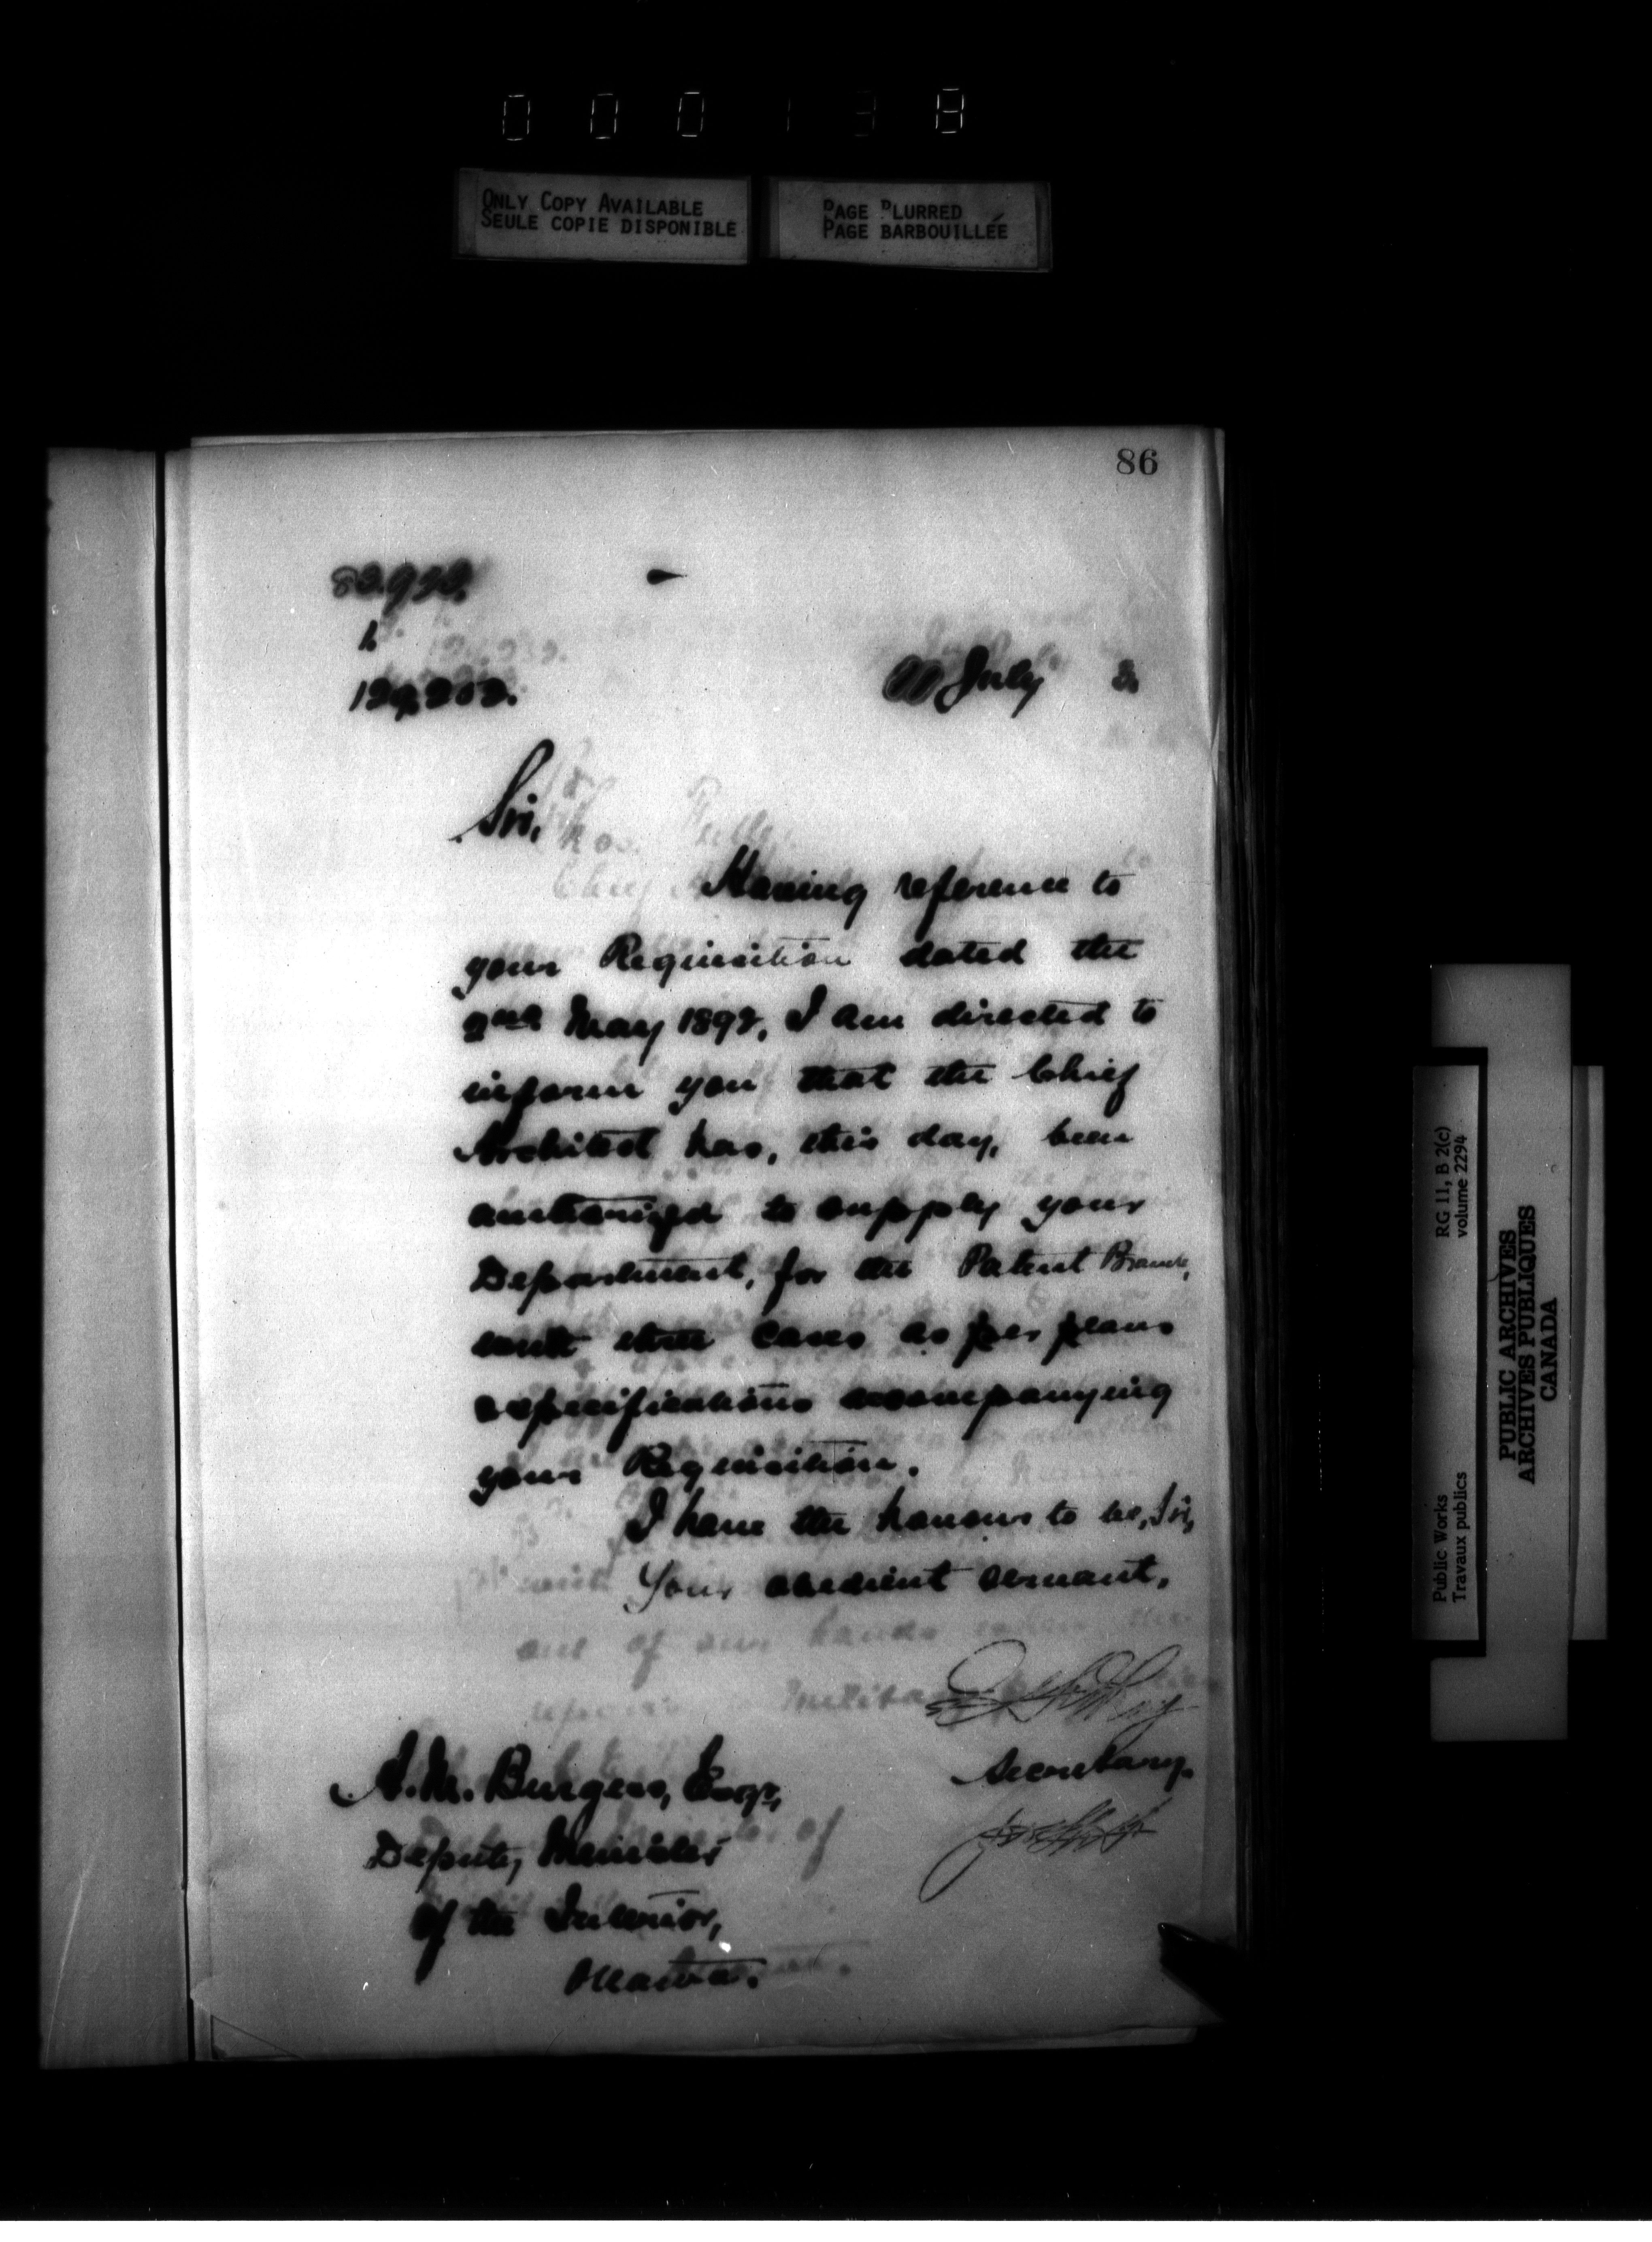 000138
ONLY COPY AVAILABLE
SEULE COPIE DISPONIBLE
PAGE BLURRED
PAGE BARBOUILLÉE
86
July 2.
Sir,
Having reference to
your Requisition dated the
2nd May 1892, I am directed to
inform you that the Chief
Architect has, this day, been
authorized to supply your
Department, for the Patent Branch,
with three cases as per plans
& specifications accompanying
your Requisition.
I have the honour to be, Sir,
Your obedient servant,
Secretary.
A. M. Burgess, Esqr,
Deputy Minister
of the Interior,
Ottawa.
RG 11, B 2(c)
volume 2294
Public Works
Travaux publics
PUBLIC ARCHIVES
ARCHIVES PUBLIQUES
CANADA